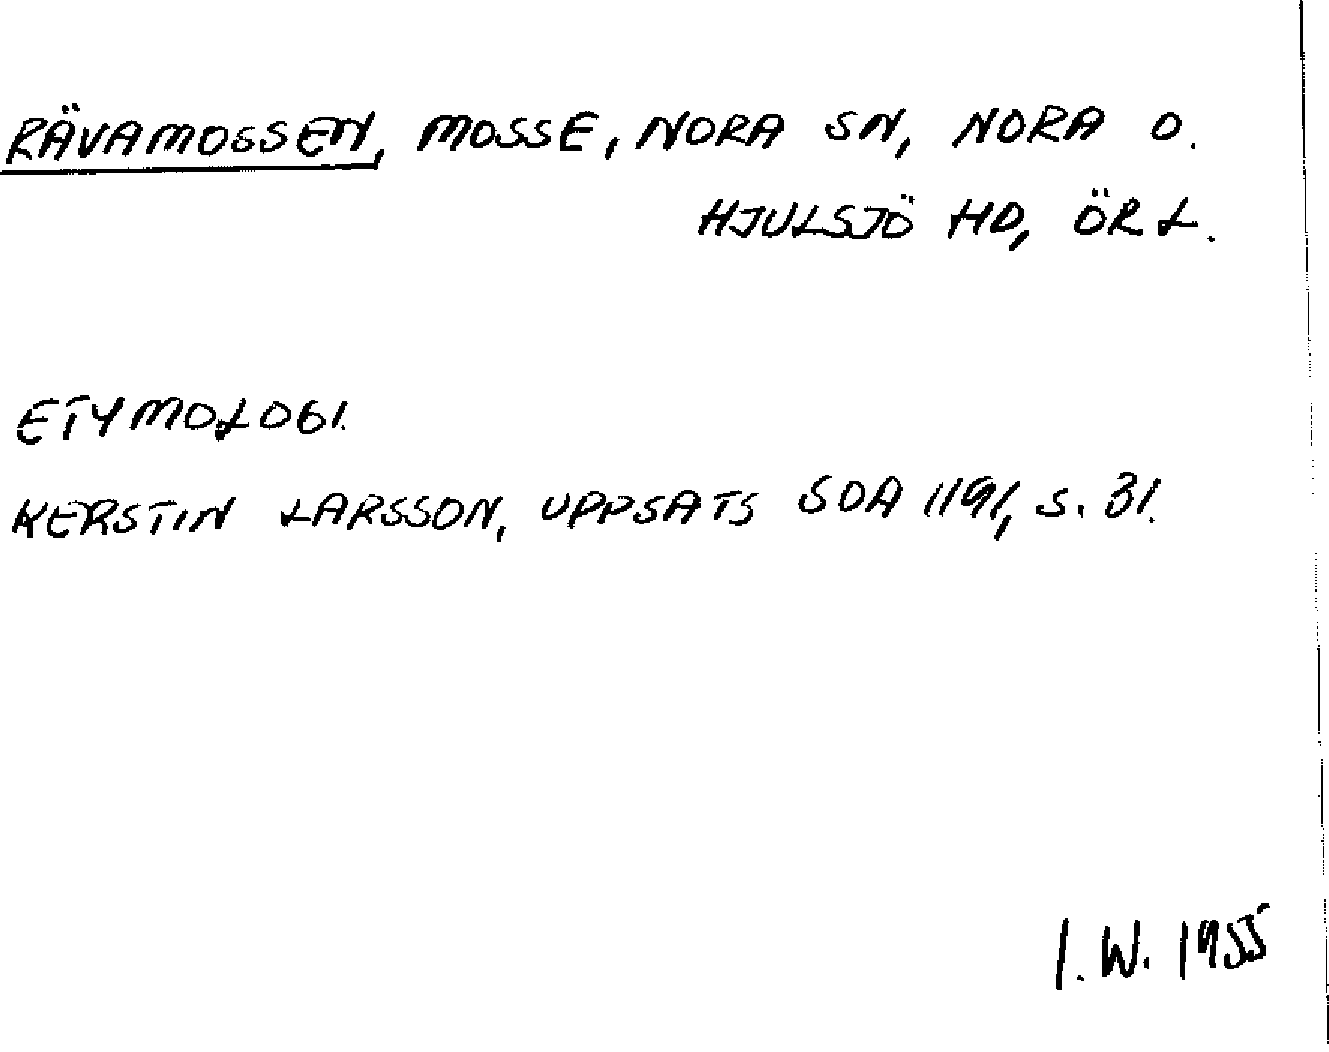 RÄVAMOSSEN, MOSSE, NORA SN, NORA O.
HJULSJÖ HD, ÖR L.
ETYMOLOGI.
KERSTIN LARSSON, UPPSATS SOA 1191, S. 31.
I. W. 1955